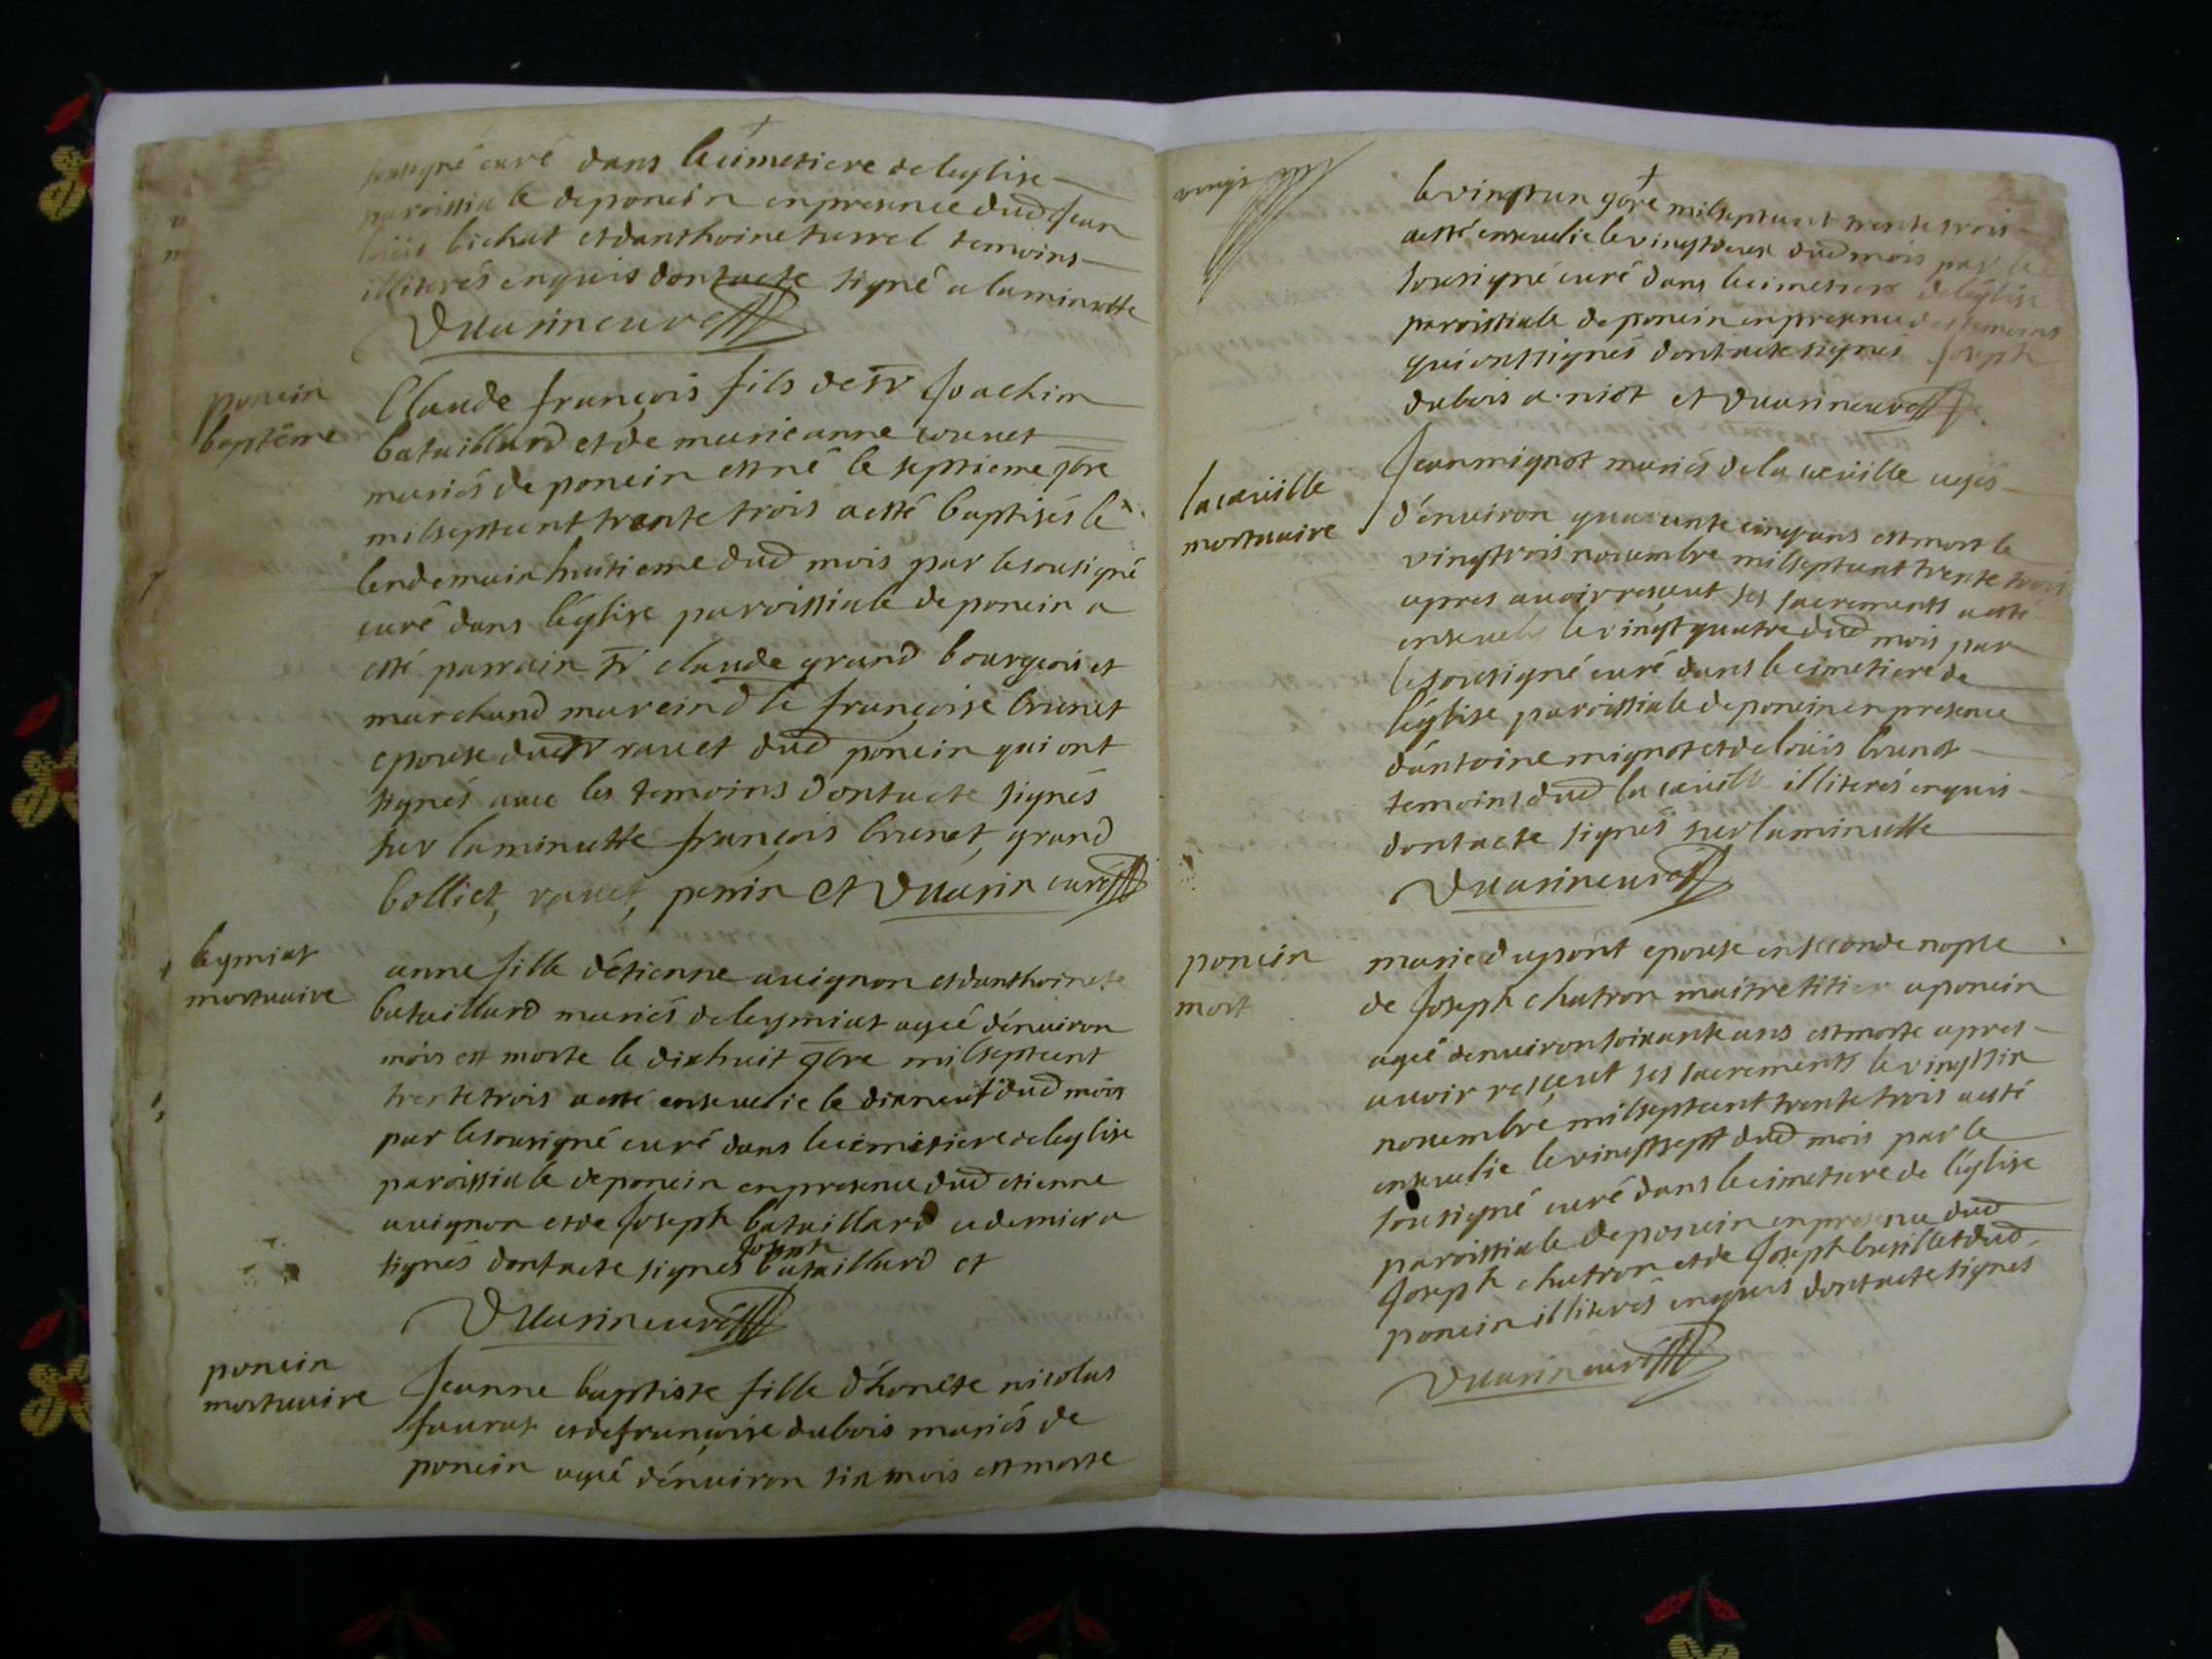 sousigné curé dans le cimetiere de leglise
paroissiale deponcin enpresence dud Jean
loüis bichat et danthoine turrel temoins
illiterés enquis dontacte signé a laminutte
Duuarin curé
poncin
baptême
Claude françois fils de sr Joachim
bataillard et de marie anne
mariés de poncin est né le septieme 9bre
milseptcent trente trois aesté baptisés le
lendemain huitieme dud mois par le sousigné
curé dans léglise paroissiale deponcin a
esté parrain sr claude grand bourgeois et
marchand mareind le françoise brunet
epouse dudsr rauet dud poncin qui ont
signés auec les temoins dontacte signés
sur laminutte françois brunet, grand
bolliet, rauet, perrin et Duuarin curé
leymiat
mortuaire
anne fille détienne auignon et danthoinete
bataillard mariés deleymiat ageé dénuiron
mois est morte le dixhuit 9bre milseptcent
trente trois aesté enseuelie le dixneuf dud mois
par lesousigné curé dans lecimetiere deleglise
paroissiale deponcin enpresence dud etienne
auignon et de Joseph bataillard cedernier a
signés dontacte signés Joseph bataillard et
Duuarin curé
poncin
mortuaire
Jeanne baptiste fille d'honéte nicolas
faurat et defrançoise dubois mariés de
poncin ageé dénuiron six mois est morte
levingtun 9bre milseptcent trente trois
aesté enseuelie le vingtdeux dud mois par le
sousigné curé dans lecimetiere deléglise
paroissiale deponcin enpresence des temoins
qui ont signés dontacte signés Joseph
dubois a. niot et Duuarin curé
lacueille
mortuaire
Jean mignot mariés dela cueille agés
d'enuiron quarante cinq ans est mort le
vingtrois nouembre milseptcent trente trois
apres auoir resçeut ses sacrements aesté
enseuely le vingt quatre dud mois par
lesousigné curé dans lecimetiere de
léglise paroissiale deponcin en presence
d'antoine mignot et deloüis brunet
temoins dud la cueille illiterés enquis
dontacte signés sur laminutte
Duuarin curé
poncin
mort
marie dupont epouse enseconde nopse
de Joseph chatron maitre titier aponcin
ageé denuiron soixante ans est morte apres
auoir resçeut ses sacrements le vingtsix
nouembre milseptcent trente trois aesté
enseuelie le vingtsept dud mois par le
sousigné curé dans lecimetiere de léglise
paroissiale deponcin enpresence dud
Joseph chatron et de Joseph bresillet dud
poncin illiterés enquis dontacte signés
Duuarin curé